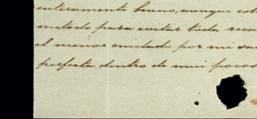 enteramente bueno, aunque est
metodo para evitar toda reca
el menor cuidado por mi sa
perfecta dentro de mui pocos